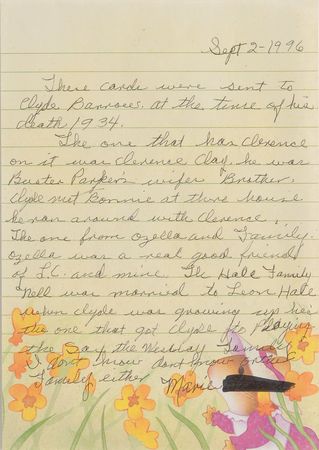 Sept 2-1996
These cards were sent to
Clyde Barrows. at the time of his
death 1934.
The one that has Clerence
on it was Clerence Clay, he was
Buster Parker's wifes Brother.
Clyde met Bonnie at there house
he ran around with Clerence.
The one from Ozella and Family.
Ozella was a real good friend
of L.C. and mine. The Hale Family
Nell was married to Leon Hale
when Clyde was growing up he's
the one that got Clyde to Playing
the Sax, the Family
I don't know dont know
Family either Marie